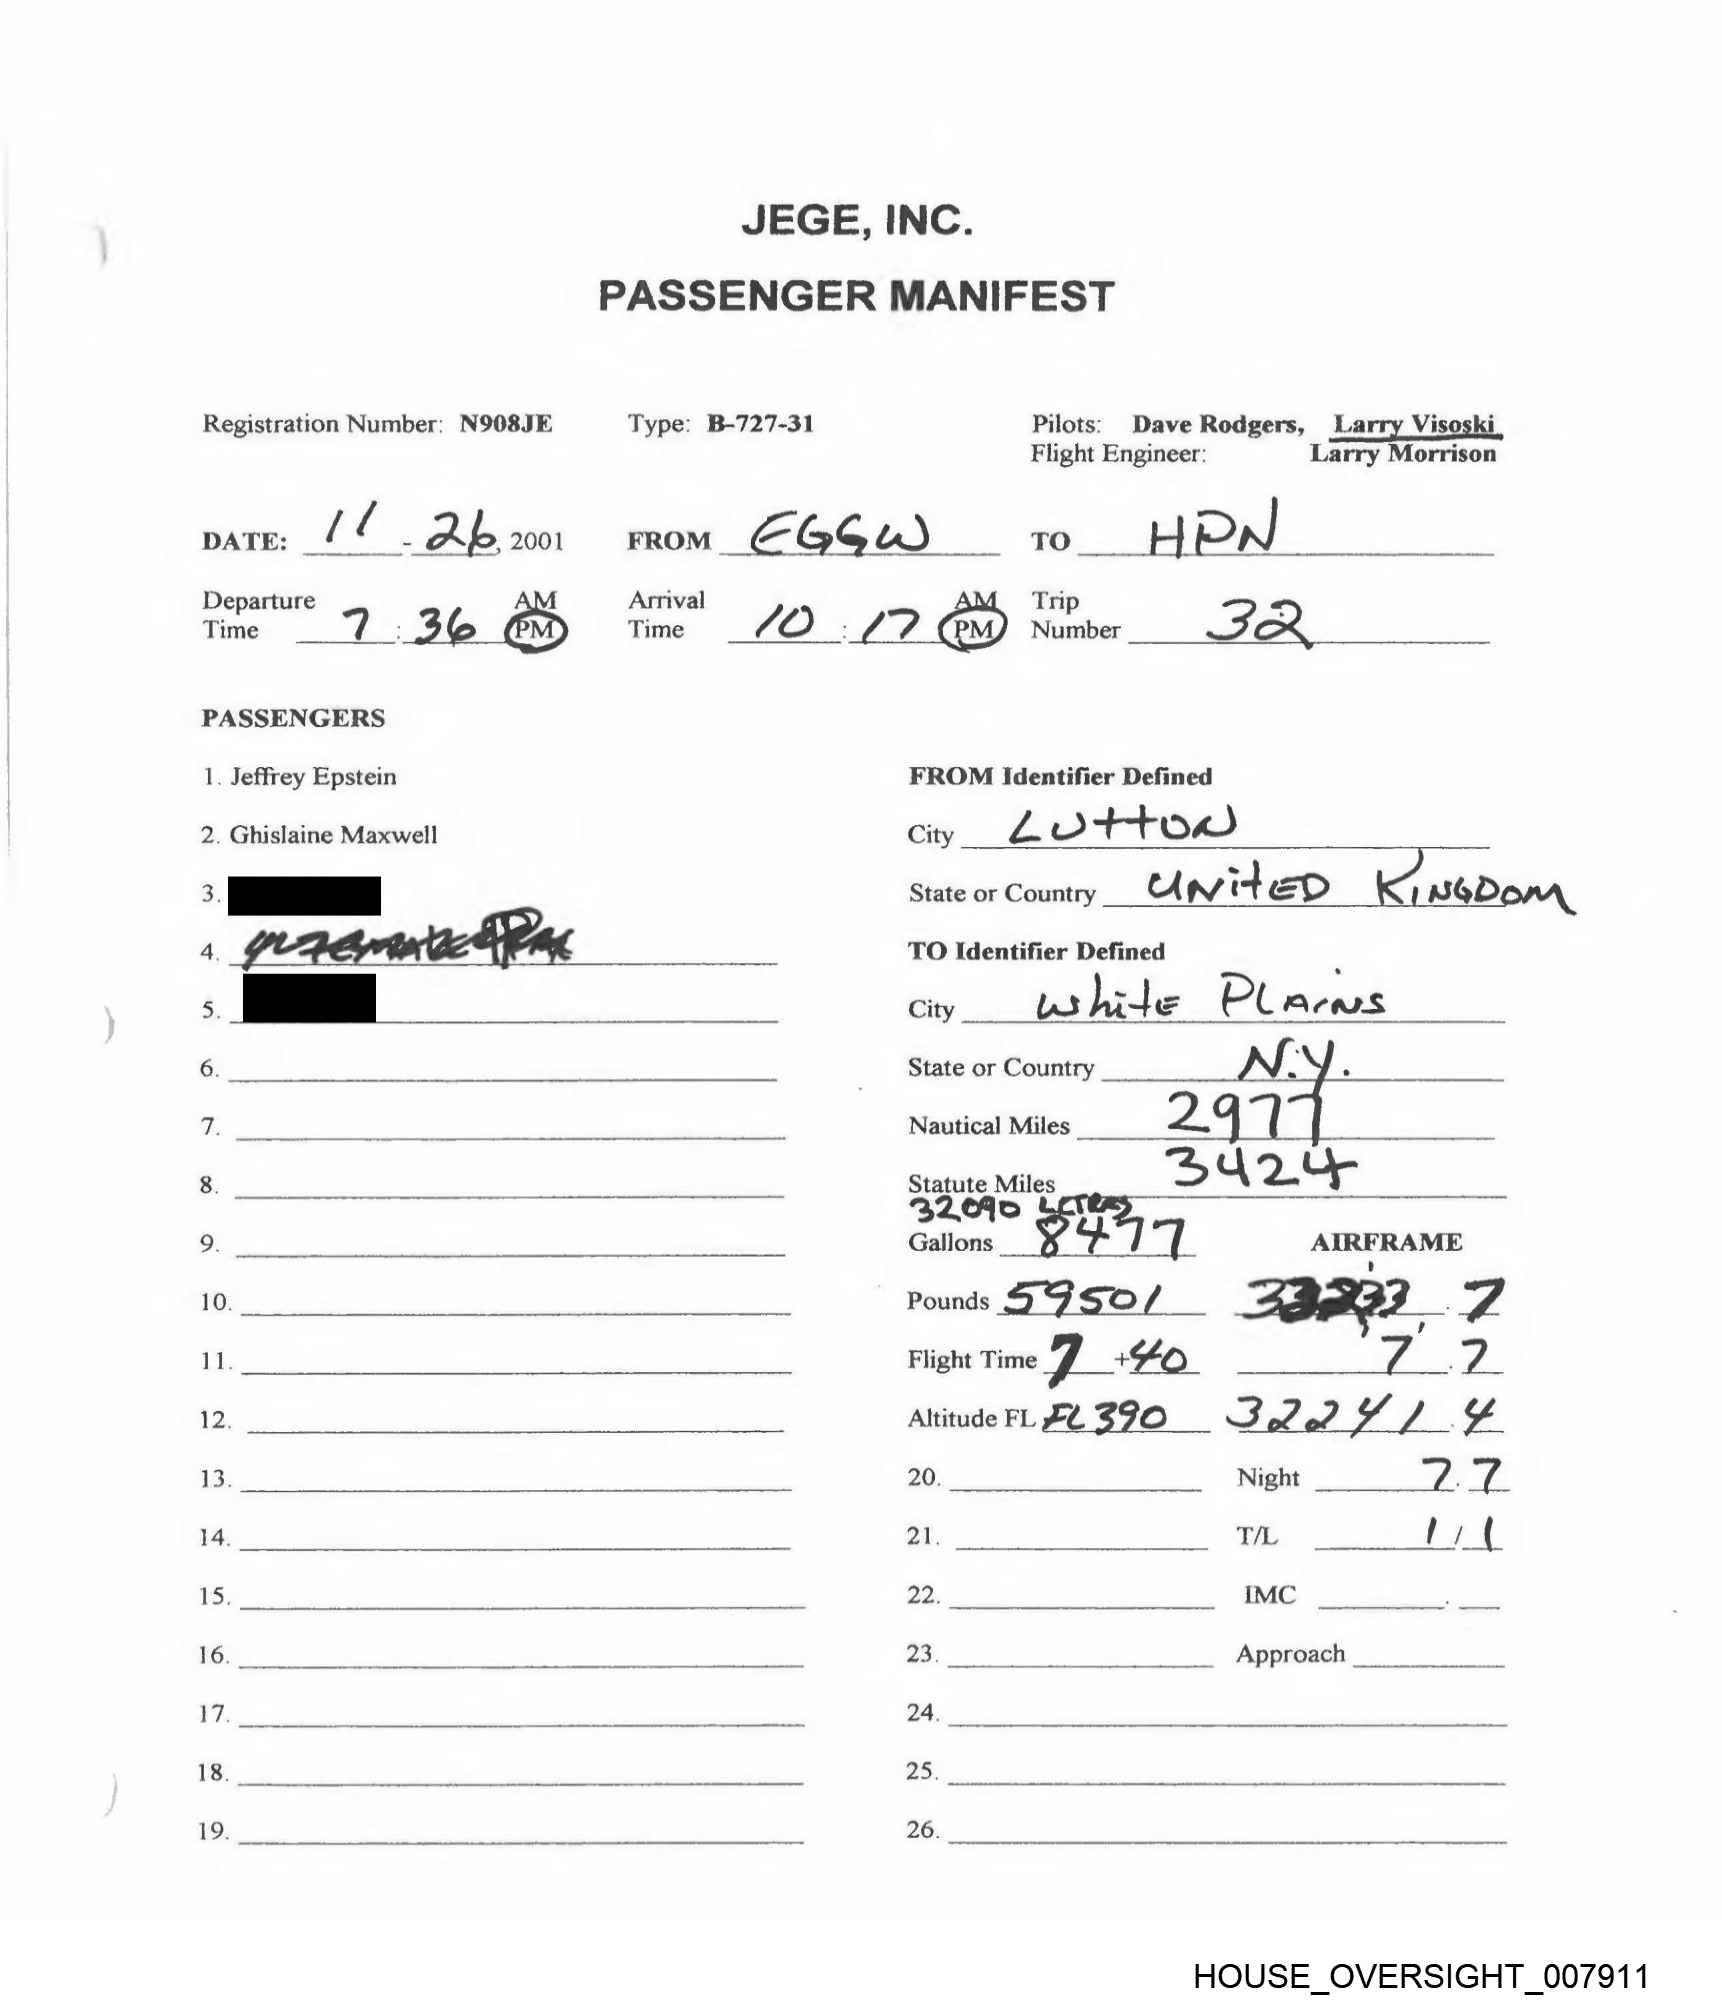 JEGE, INC.
PASSENGER MANIFEST
Registration Number: N908JE Type: B-727-31 Pilots: Dave Rodgers, Larry Visoski
Flight Engineer: Larry Morrison
DATE: 11 - 26, 2001 FROM EGGW TO HPN
Departure Time 7 : 36 AM PM Arrival Time 10 : 17 AM PM Trip Number 32
PASSENGERS
1. Jeffrey Epstein
2. Ghislaine Maxwell
3.
4.
5.
6.
7.
8.
9.
10.
11.
12.
13.
14.
15.
16.
17.
18.
19.
FROM Identifier Defined
City LUTTON
State or Country UNITED KINGDOM
TO Identifier Defined
City White PLAiNS
State or Country N.Y.
Nautical Miles 2977
Statute Miles 3424
32090 LITRES
Gallons 8477 AIRFRAME
Pounds 59501 .7
Flight Time 7 +40 7.7
Altitude FL FL390 32241.4
20. Night 7.7
21. T/L 1/1
22. IMC .
23. Approach
24.
25.
26.
HOUSE_OVERSIGHT_007911